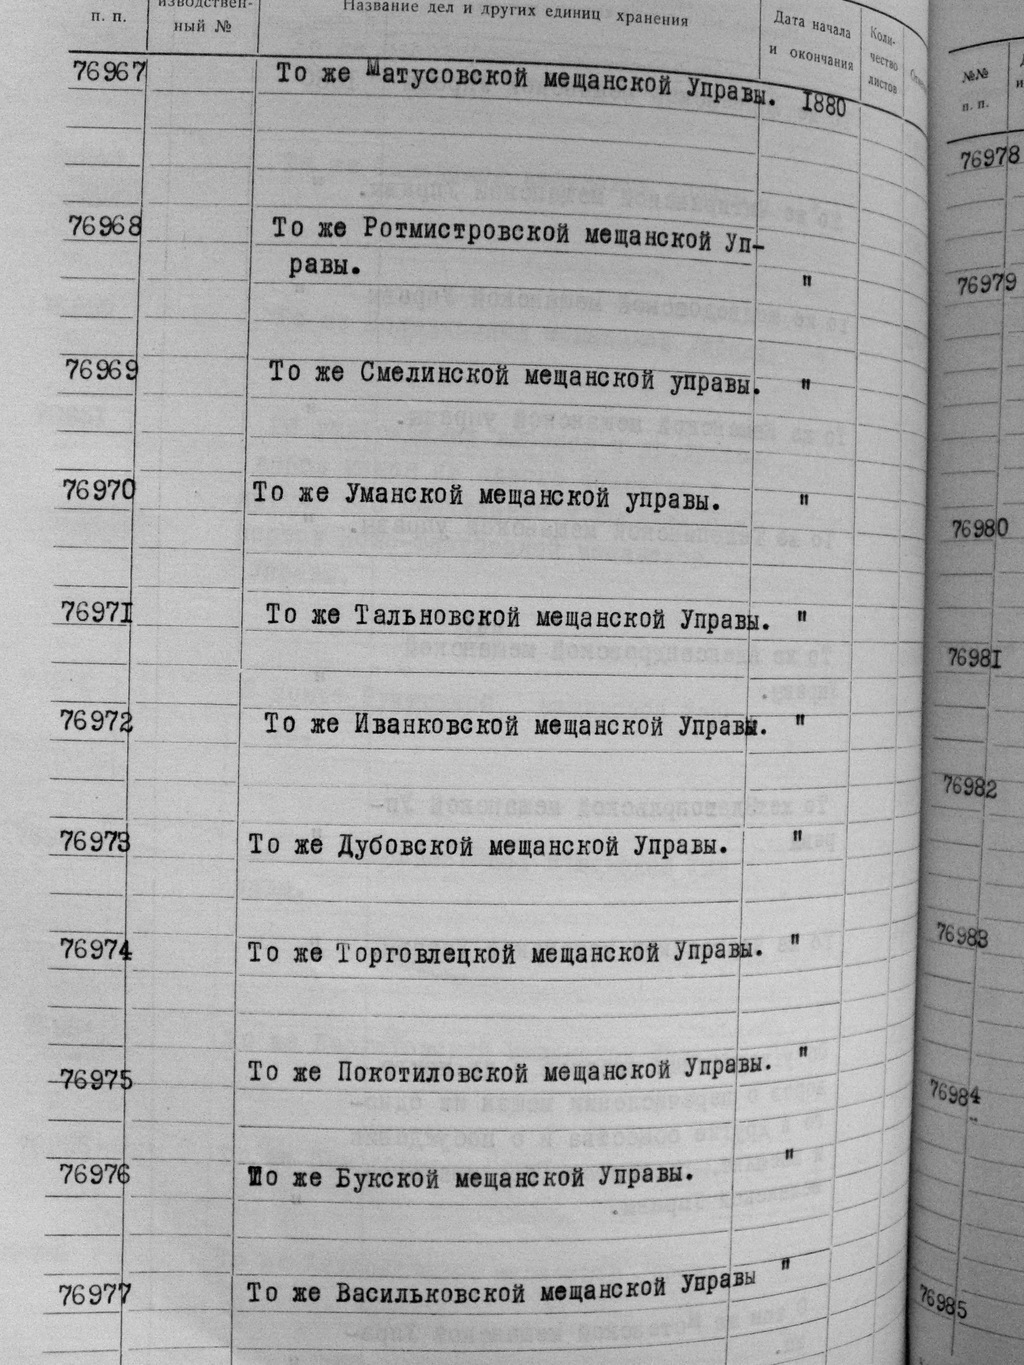 п. п.
изводствен-
ный №
Название дел и других единиц хранения
Дата начала
и окончания
Коли-
чество
листов
76967 То же Матусовской мещанской Управы. 1880
76968 То же Ротмистровской мещанской Уп-
равы. "
76969 То же Смелинской мещанской управы. "
76970 То же Уманской мещанской управы. "
76971 То же Тальновской мещанской Управы. "
76972 То же Иванковской мещанской Управы. "
76973 То же Дубовской мещанской Управы. "
76974 То же Торговлецкой мещанской Управы. "
76975 То же Покотиловской мещанской Управы. "
76976 То же Букской мещанской Управы. "
76977 То же Васильковской мещанской Управы "
№№
п. п.
76978
76979
76980
76981
76982
76983
76984
76985